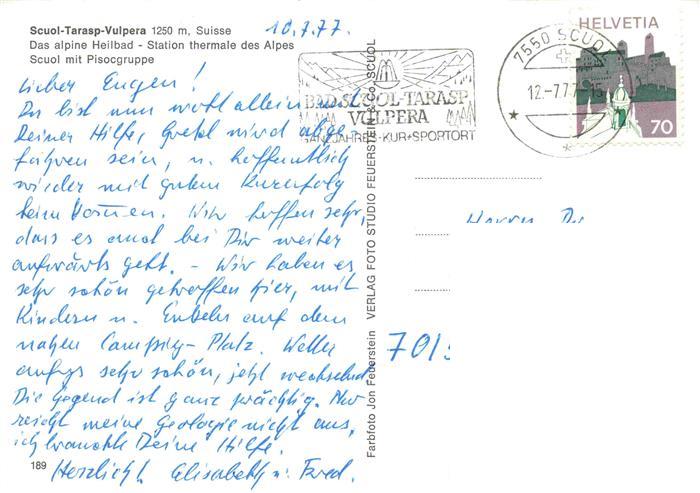 Scuol-Tarasp-Vulpera 1250 m, Suisse
Das alpine Heilbad - Station thermale des Alpes
Scuol mit Pisocgruppe
10.7.77.
Lieber Eugen!
Du bist nun wohl allein mit
Deiner Hilfe, Gretel wird abge-
fahren sein, u. hoffentlich
wieder mit gutem Kurerfolg
heim kommen. Wir hoffen sehr,
dass es auch bei Dir weiter
aufwärts geht. - Wir haben es
sehr schön getroffen hier, mit
Kindern u. Enkeln auf dem
nahen Camping-Platz. Wetter
anfgs sehr schön, jetzt wechselnd
Die Gegend ist ganz prächtig. Nur
reicht meine Geologie nicht aus,
ich brauchte Deine Hilfe.
Herzlichst Elisabeth u. Fred.
189
Farbfoto Jon Feuerstein VERLAG FOTO STUDIO FEUERSTEIN & Co. SCUOL
BAD SCUOL-TARASP
VULPERA
GANZJAHRES-KUR+SPORTORT
7550 SCUOL
12.-7.77.-15
HELVETIA
70
701